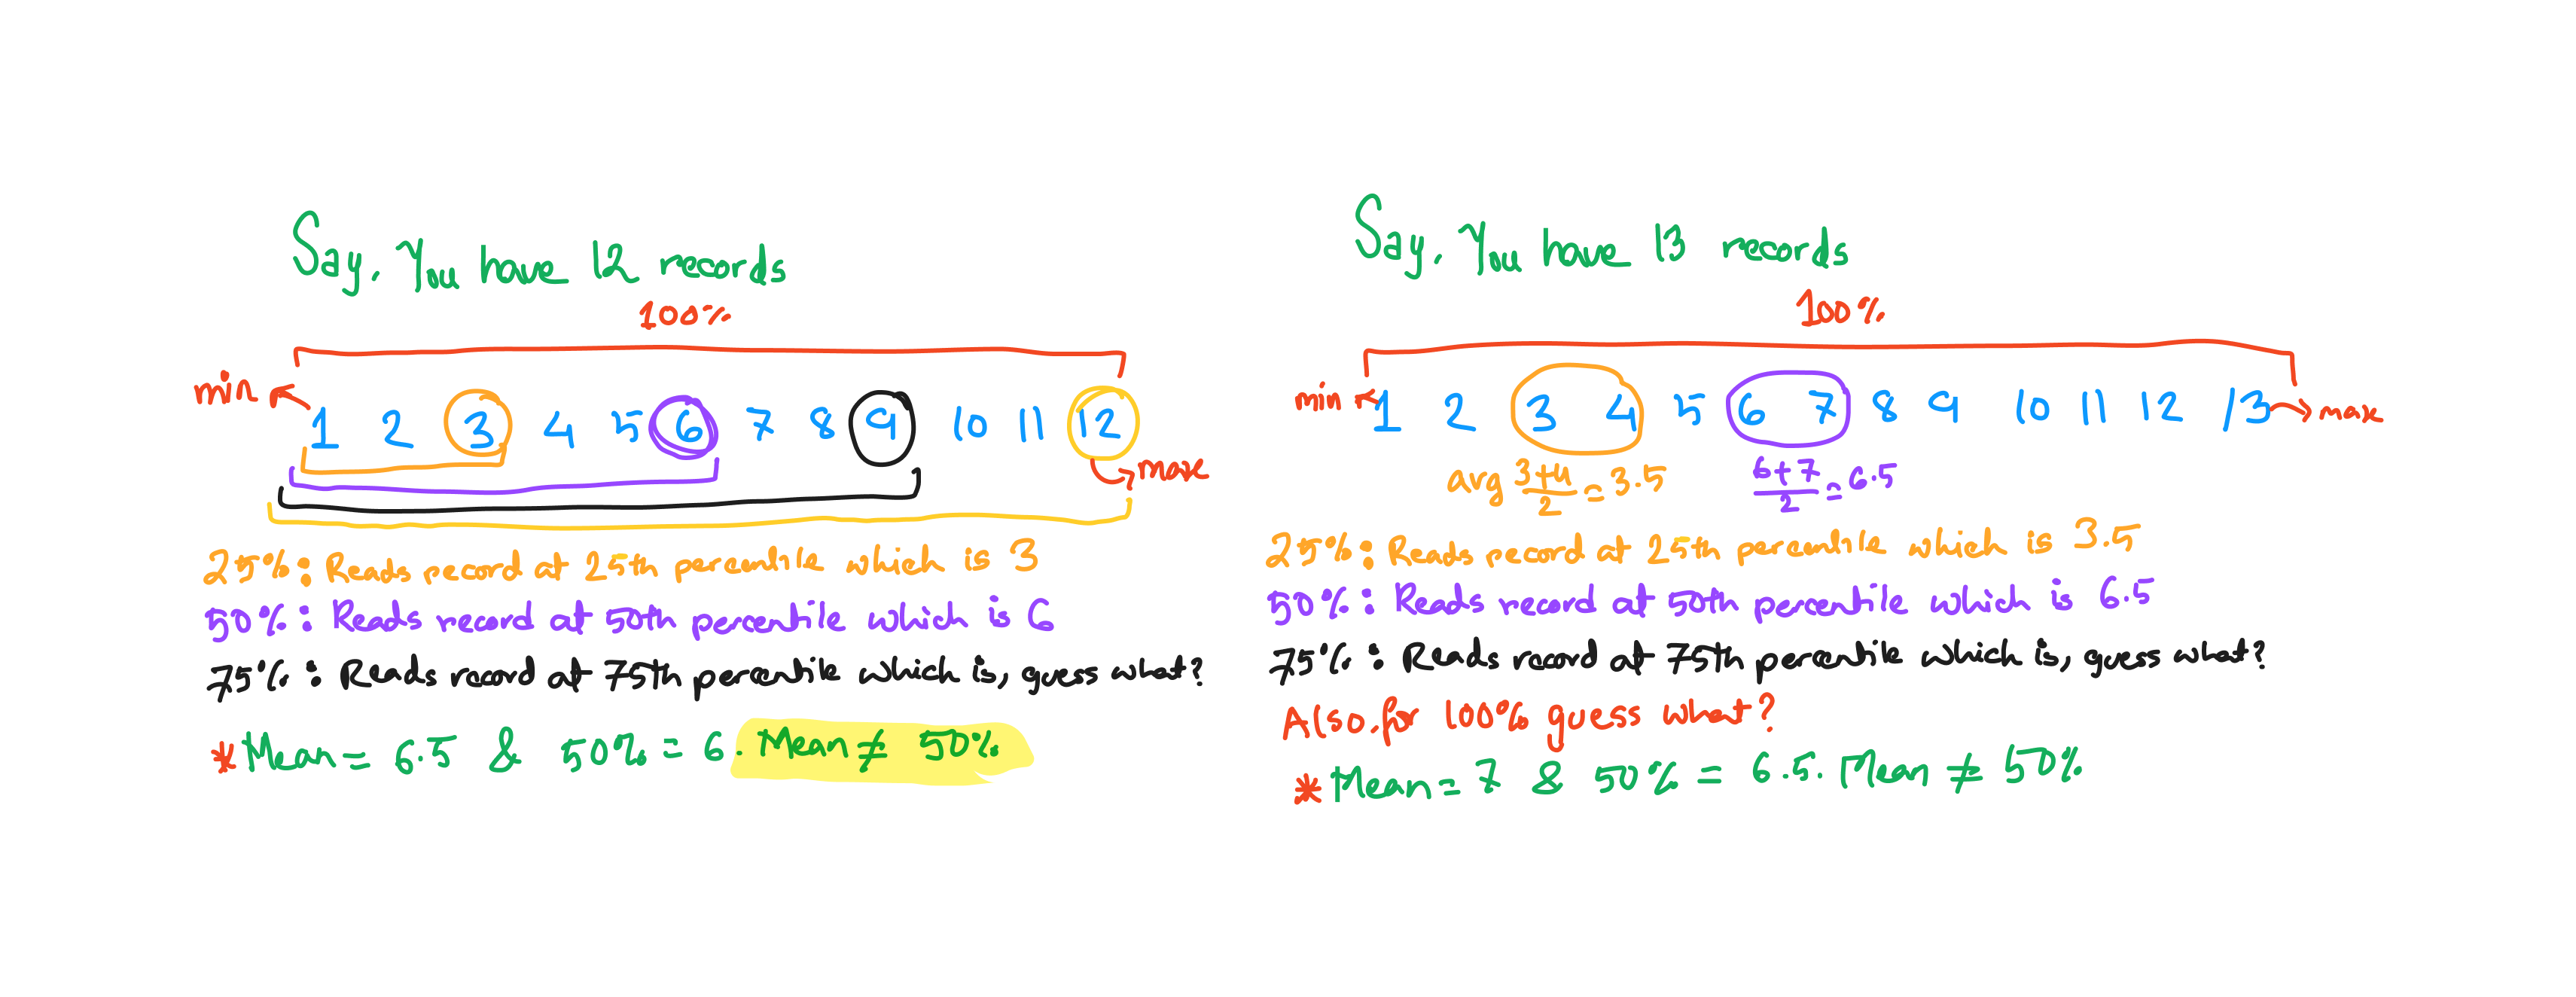 Say, You have 12 records
100%
min
1 2 3 4 5 6 7 8 9 10 11 12
max
25%: Reads record at 25th percentile which is 3
50%: Reads record at 50th percentile which is 6
75%: Reads record at 75th percentile which is, guess what?
*Mean = 6.5 & 50% = 6. Mean ≠ 50%
Say, You have 13 records
100%
min 1 2 3 4 5 6 7 8 9 10 11 12 13 max
avg 3+4/2 = 3.5 6+7/2 = 6.5
25%: Reads record at 25th percentile which is 3.5
50%: Reads record at 50th percentile which is 6.5
75%: Reads record at 75th percentile which is, guess what?
Also, for 100% guess what?
*Mean = 7 & 50% = 6.5. Mean ≠ 50%